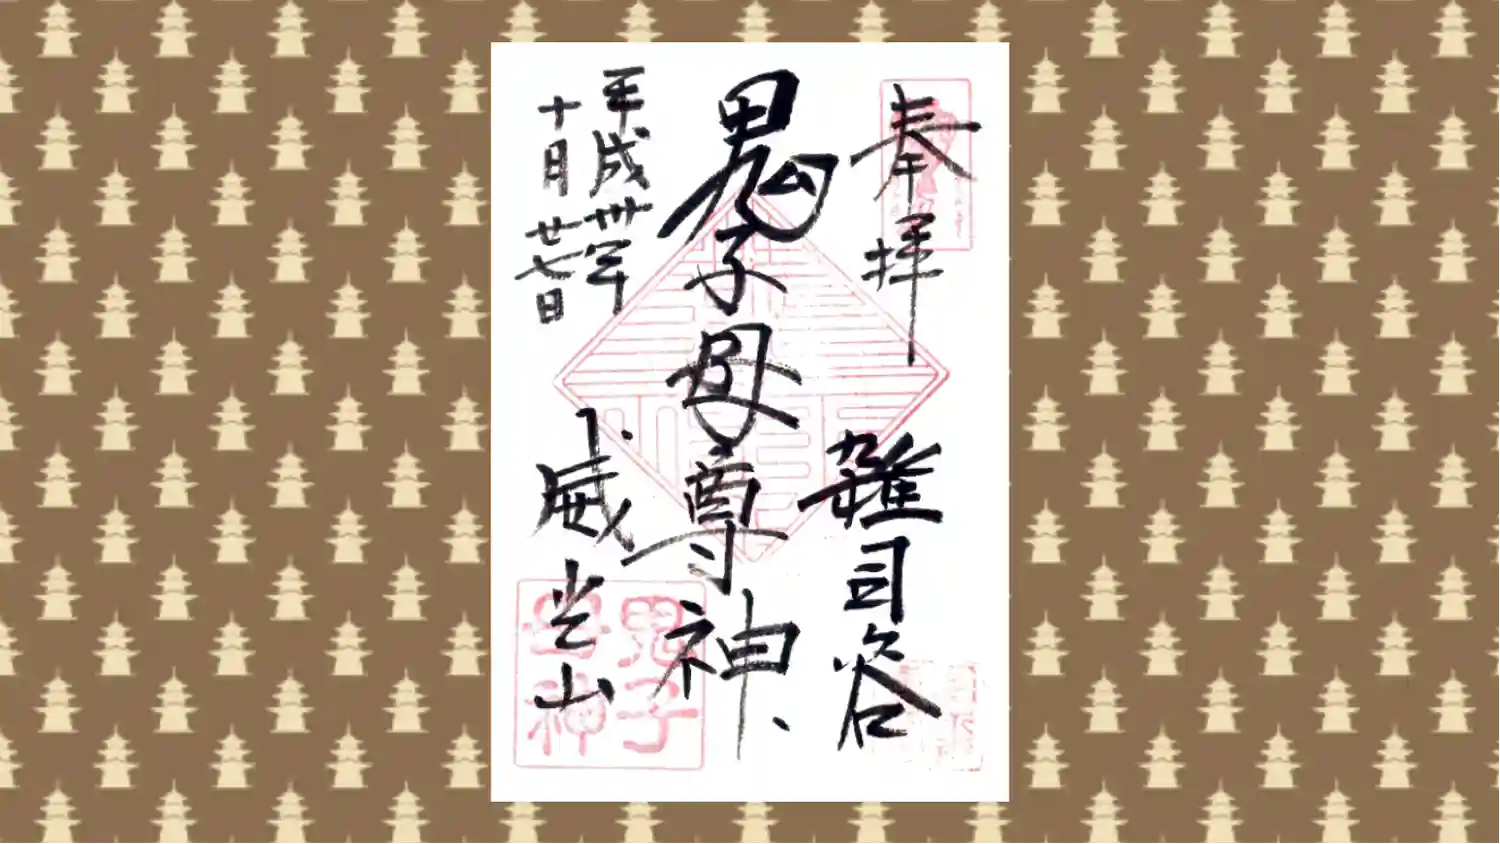 奉拝
雑司谷
鬼子母尊神
平成卅年
十月廿七日
威光山
鬼子
母神